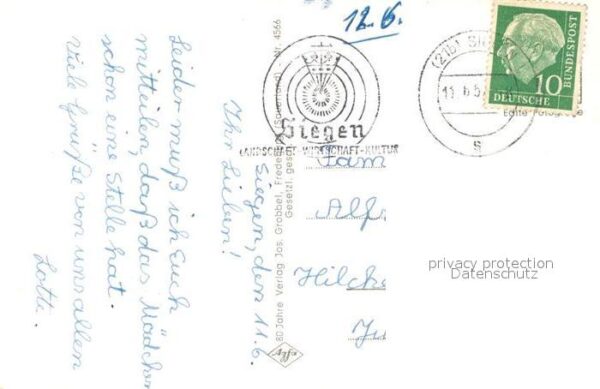 12.6.
(21b) Si
11. 6. 5
s
10
DEUTSCHE
BUNDESPOST
Siegen
LANDSCHAFT-WIRTSCHAFT-KULTUR
Siegen, den 11.6.
Ihr Lieben!
Leider muß ich Euch
mitteilen, daß das Mädchen
schon eine Stelle hat.
Viele Grüße von uns allen
Lotte.
80 Jahre Verlag Jos. Grobbel, Fredeburg (Sauerland) Nr. 4566
Gesetzl. ges
Fam
Alf
Hilche
Ju
privacy protection
Datenschutz